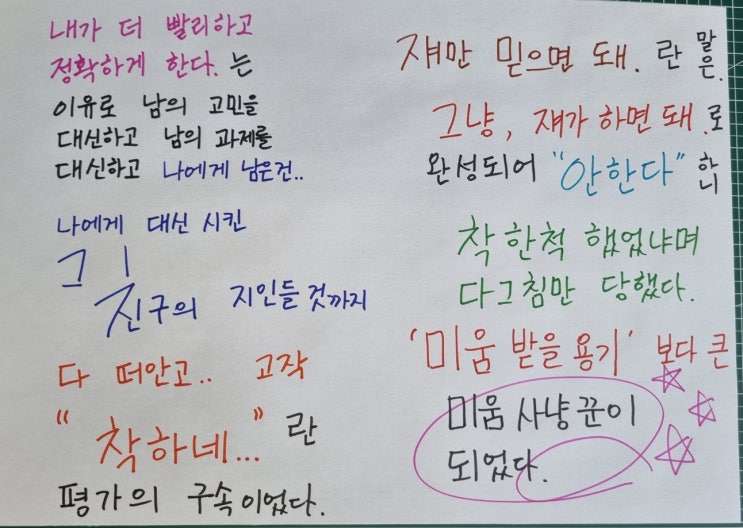 내가 더 빨리하고
정확하게 한다. 는
이유로 남의 고민을
대신하고 남의 과제를
대신하고 나에게 남은건..
나에게 대신 시킨
그 친구의 지인들 것까지
다 떠안고.. 고작
"착하네..." 란
평가의 구속이었다.
쟤만 믿으면 돼. 란 말은.
그냥, 쟤가 하면 돼.로
완성되어 "안한다" 하니
착한척 했었냐며
다그침만 당했다.
'미움 받을 용기' 보다 큰
미움 사냥꾼이
되었다.